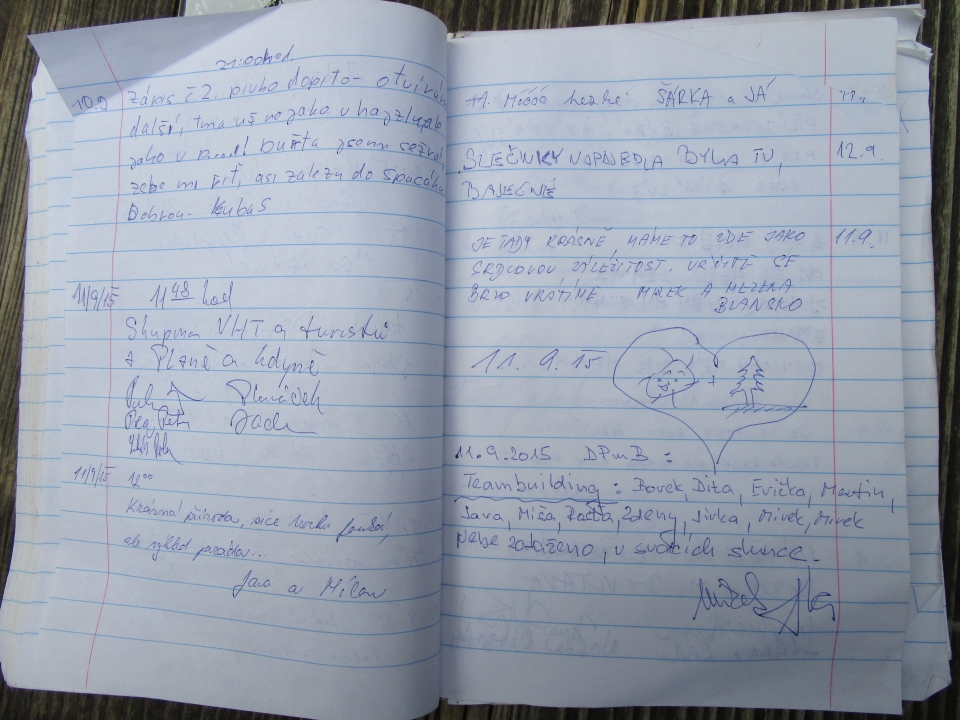 21:00 hod.
10.9 Zápis č 2. pivko dopito - otvírám
další, tma už ne jako v hajzlu, ale
jako v buřta jsem sežral
zebe mi řiť, asi zalezu do spacáku
Dobrou - Kubas
11/9/15 11 48 hod
Skupina VHT a turistů
z Plzně a Kdyně
Plaváček
11/9/15 12 00
Krásná příroda, sice trochu fouká,
ale výhled paráda...
Java a Milan
11. Móóóc hezké ŠÁRKA a JÁ 11.
SLEČINKY NAPAJEDLA BYLA TU, 12.9.
BÁJEČNĚ
JE TADY KRÁSNĚ, MÁME TO ZDE JAKO 11.9.
SRDCOVOU ZÁLEŽITOST. URČITĚ SE
BRZO VRÁTÍME MIREK A
BLANSKO
11. 9. 15
+
11.9.2015 DPmB =
Teambuilding : Borek, Dita, Evička, Martin,
Java, Míša, Zdeny, Jivka, Mirek, Mirek
Nebe zataženo, v srdcích slunce.